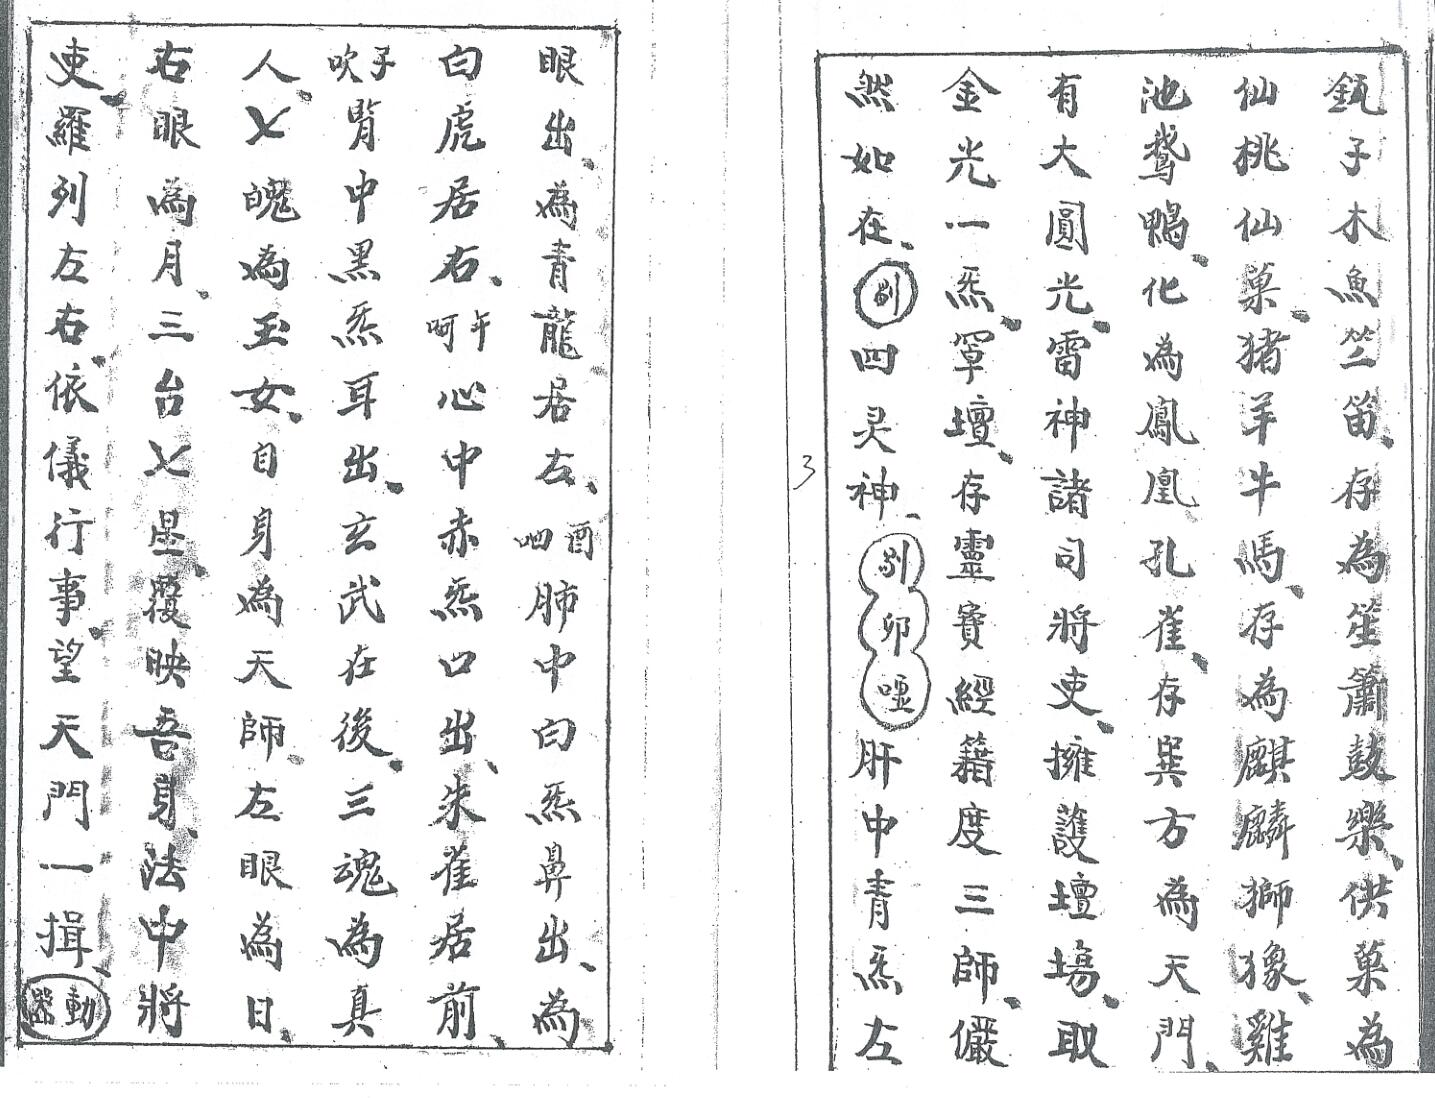 鈺子木魚竺笛、存為笙簫鼓樂、供菓為
仙桃仙菓、猪羊牛馬、存為麒麟獅㺄、雞
池鵞鴨、化為鳳凰孔雀、存巽方為天門、
有大圓光、雷神諸司將吏、擁護壇塲、取
金光一炁、罩壇、存靈寶經籍度三師、儼
然如在、四灵神、卯噓肝中青炁左
3
眼出、為青龍居左、酉呬肺中白炁鼻出、為
白虎居右、午呵心中赤炁口出、朱雀居前、
子吹腎中黑炁耳出、玄武在後、三魂為真
人、七魄為玉女、自身為天師、左眼為日、
右眼為月、三台七星、覆映吾身、法中將
吏、羅列左右、依儀行事、望天門一揖、動